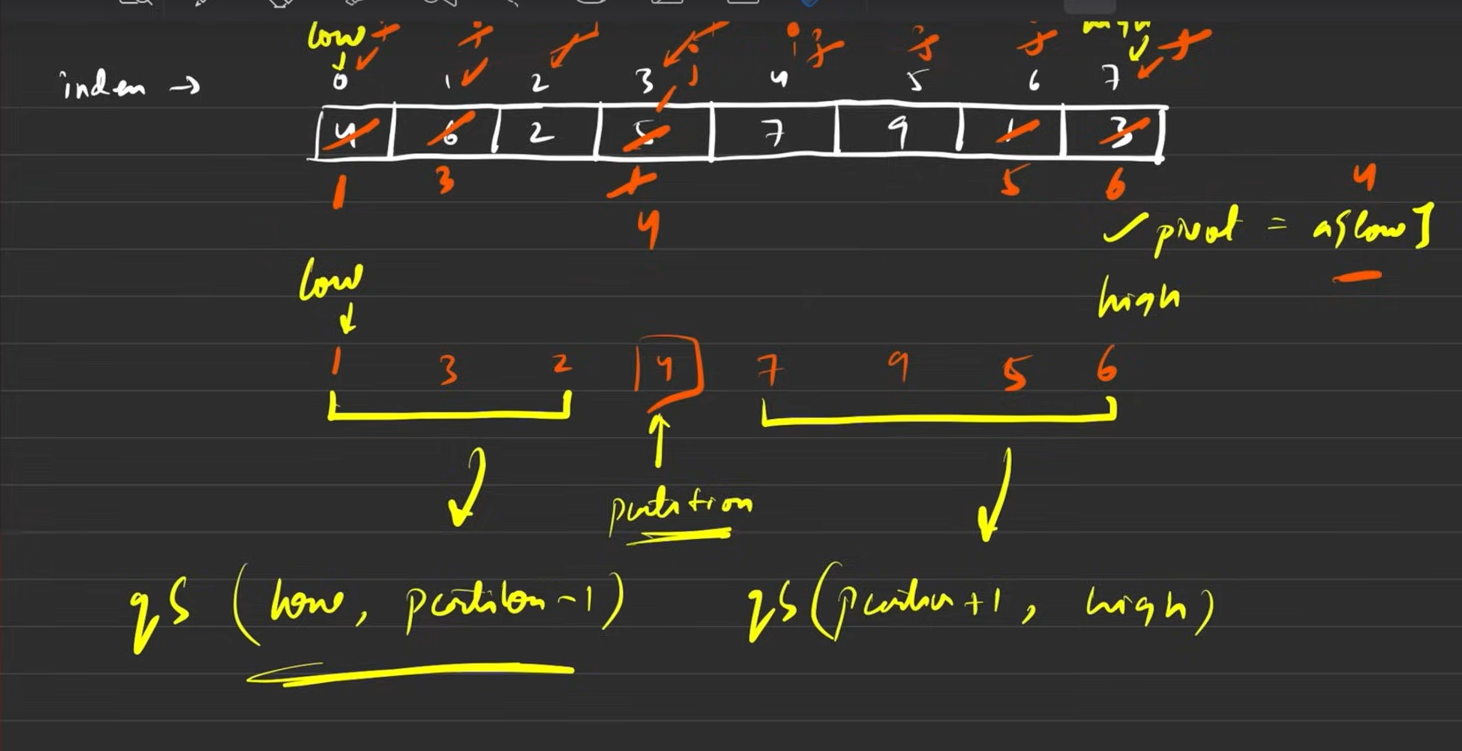 low high
index → 0 1 2 3 4 5 6 7
4 6 2 5 7 9 1 3
1 3 1 5 6 4
4 pivot = a[low]
low high
1 3 2 4 7 9 5 6
partition
qS (low, partition-1) qS(partition+1, high)